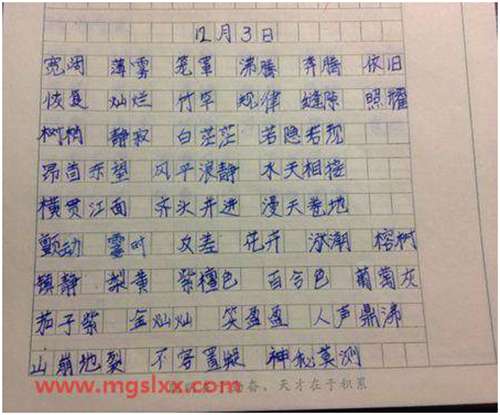 12月3日
宽阔 薄雾 笼罩 沸腾 奔腾 依旧
恢复 灿烂 竹竿 规律 缝隙 照耀
树梢 静寂 白茫茫 若隐若现
昂首东望 风平浪静 水天相接
横贯江面 齐头并进 漫天卷地
颤动 霎时 交差 花卉 浪潮 榕树
镇静 梨黄 紫檀色 百合色 葡萄灰
茄子紫 金灿灿 笑盈盈 人声鼎沸
山崩地裂 不容置疑 神秘莫测
www.mgslxx.com
天才在于积累